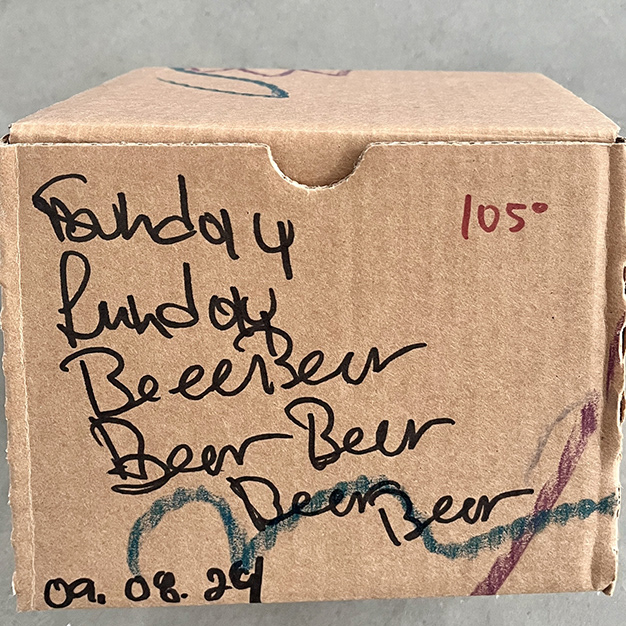 Sunday
105°
Funday
Beer Beer
Beer Beer
Beer Beer
09. 08. 24